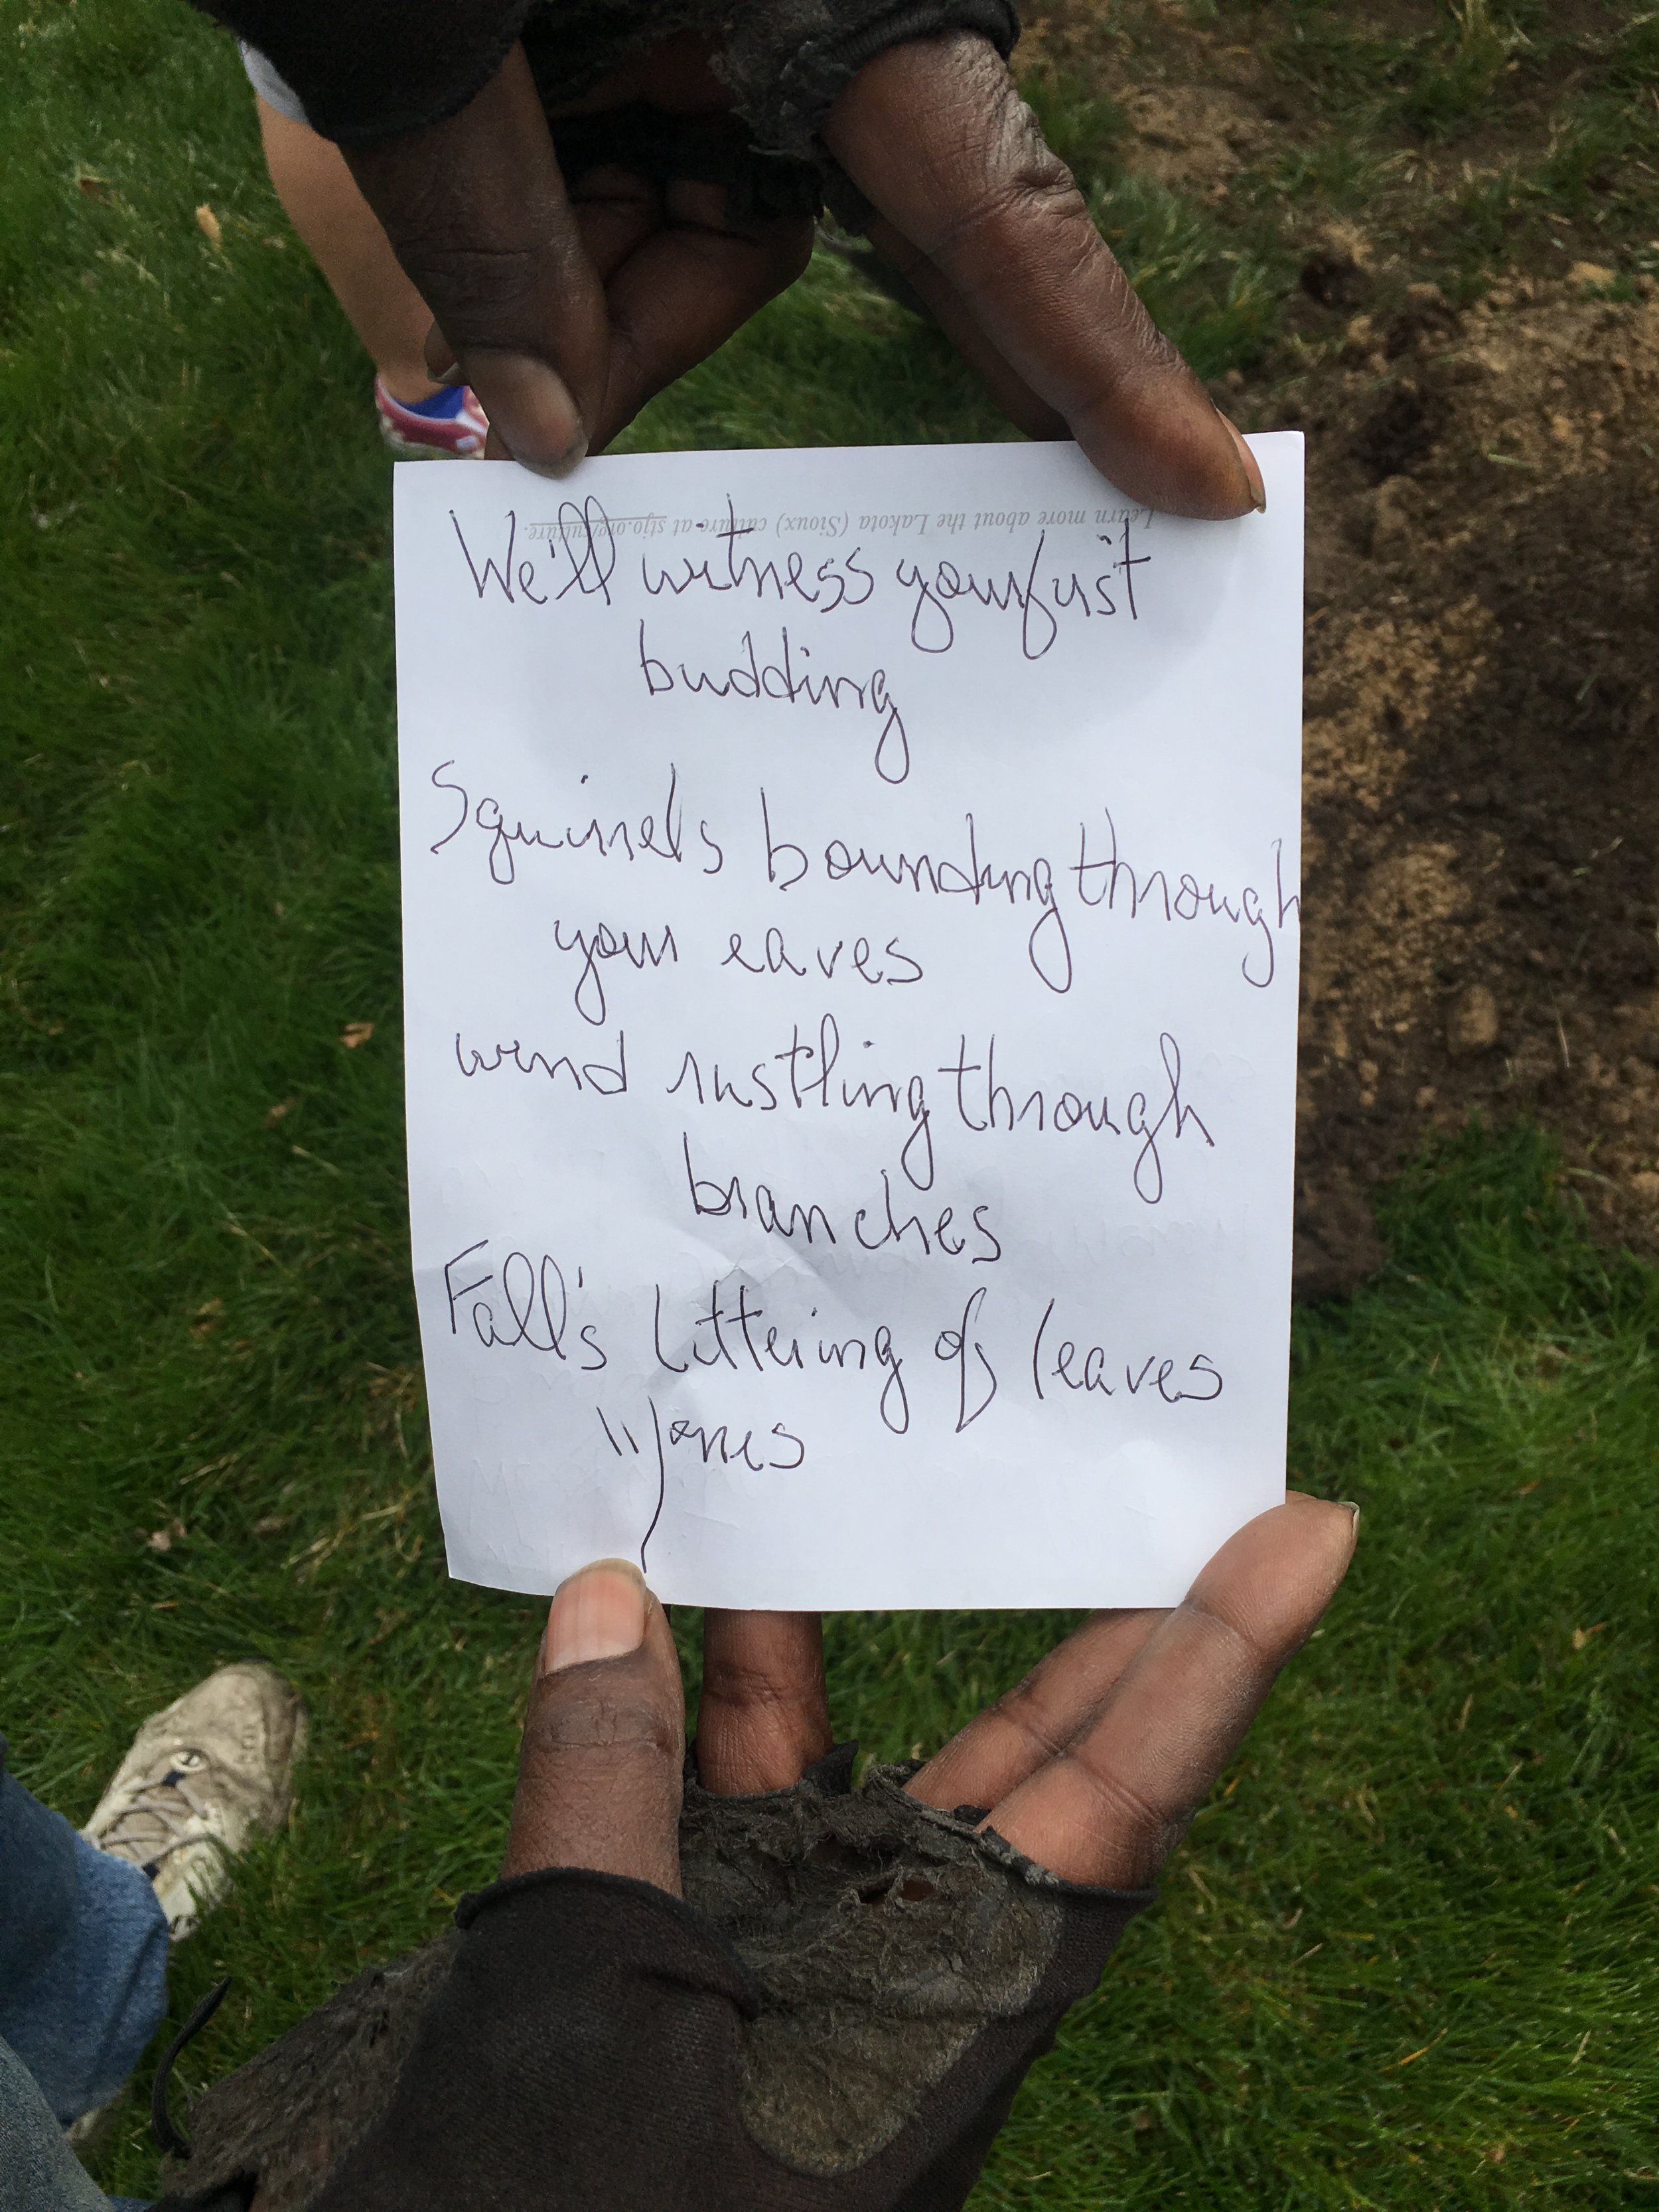 Learn more about the Lakota (Sioux) culture at stjo.org/culture.
We'll witness your first
budding
Squirrels bounding through
your eaves
wind rustling through
branches
Fall's littering of leaves